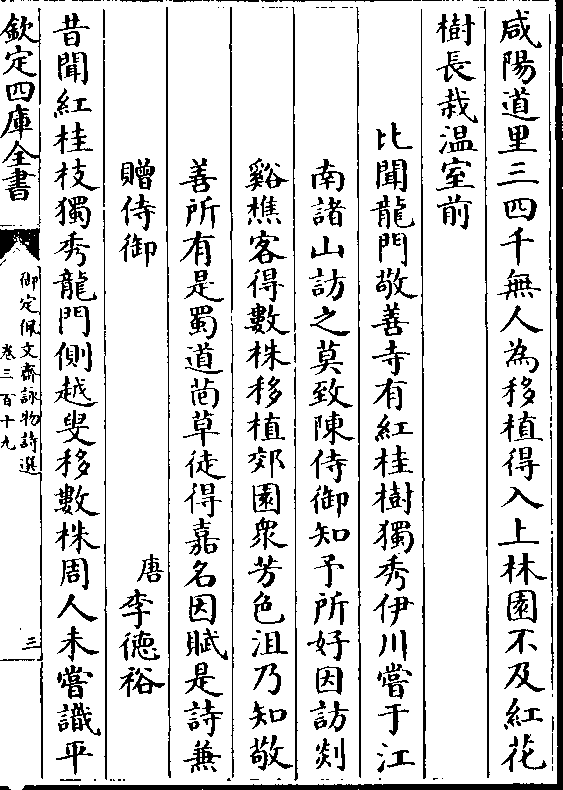 咸陽道里三四千無人為移植得入上林園不及紅花
樹長栽温室前
比聞龍門敬善寺有紅桂樹獨秀伊川嘗于江
南諸山訪之莫致陳侍御知予所好因訪剡
谿樵客得數株移植郊園衆芳色沮乃知敬
善所有是蜀道菵草徒得嘉名因賦是詩兼
贈侍御 唐李德裕
昔聞紅桂枝獨秀龍門側越叟移數株周人未嘗識平
欽定四庫全書
御定佩文齋詠物詩選
卷三百十九
三